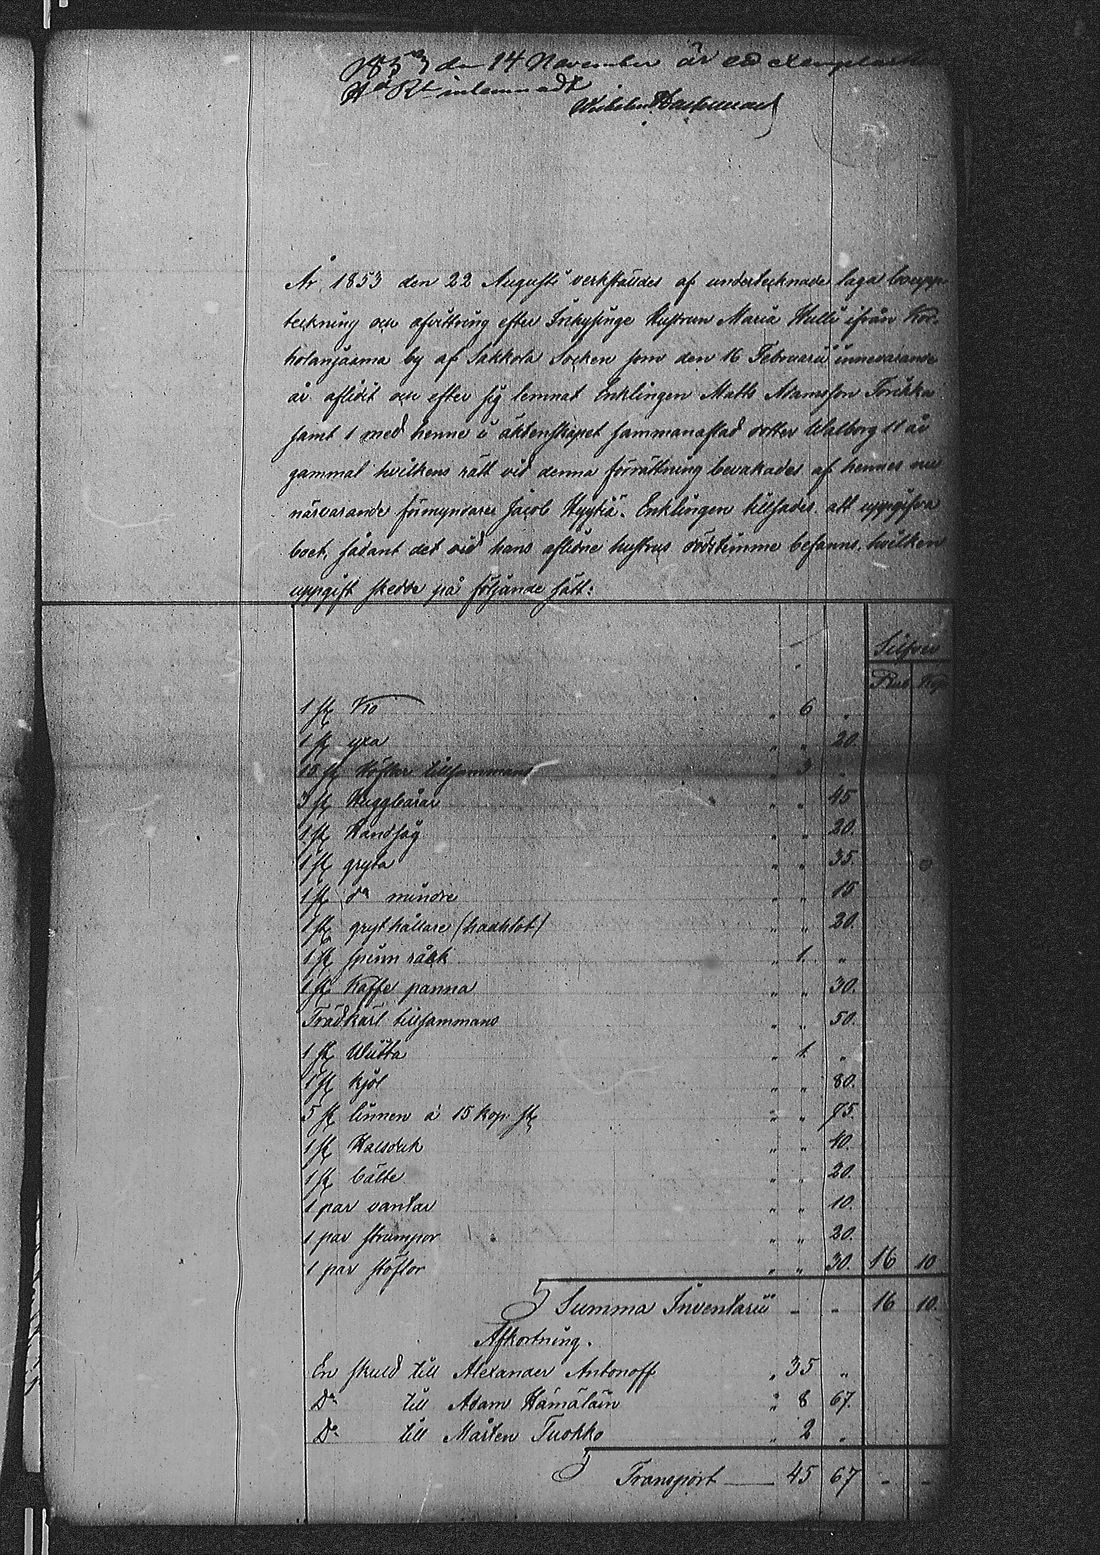 1853 den 14 November är ett exemplar till
Hd Rt inlemnadt

År 1853 den 22 Augusti verkställdes af undertecknade laga bouppteckning
teckning och afvittring efter Inhysinge Hustrun Maria Hulli ifrån
by af Sakkola Socken som den 16 Februarii innevarande
år aflidit och efter sig lemnat Enklingen Matts Adamsson
samt 1 med henne i äktenskapet sammanaflad dotter Walborg 11 år
gammal hvilkens rätt vid denna förrättning bevakades af hennes nu
närvarande förmyndare Jacob Hyytiä. Enklingen tillsades att uppgifva
boet, sådant det vid hans aflidne hustrus dödstimme befanns, hvilken
uppgift skedde på följande sätt:
Silfver
Rub. Kop.
1 st Ko " 6 "
1 st yxa " " 20.
st tillsammans " 3 "
3 st " " 45
1 st Handsåg " " 20.
1 st gryta " " 35.
1 st do mindre " " 15
1 st grythållare (haahlot) " " 20.
1 st spinn råkk " 1. "
1 st Kaffe panna " " 30.
Trädkärl tillsammans " " 50.
1 st Wiitta " 1. "
1 st kjol " " 80.
5 st linnen à 15 kop. st " " 75.
1 st Halsduk " " 40.
1 st bälte " " 20.
1 par vantar " " 10.
1 par strumpor " " 20.
1 par stöflor " " 30. 16 10
Summa Inventarii - " 16 10.
Afkortning.
En skuld till Alexander Antonoff " 35 "
Do till Adam Hämäläin " 8 67.
Do till Mårten Tuokko " 2 "
Transport — 45 67 - -